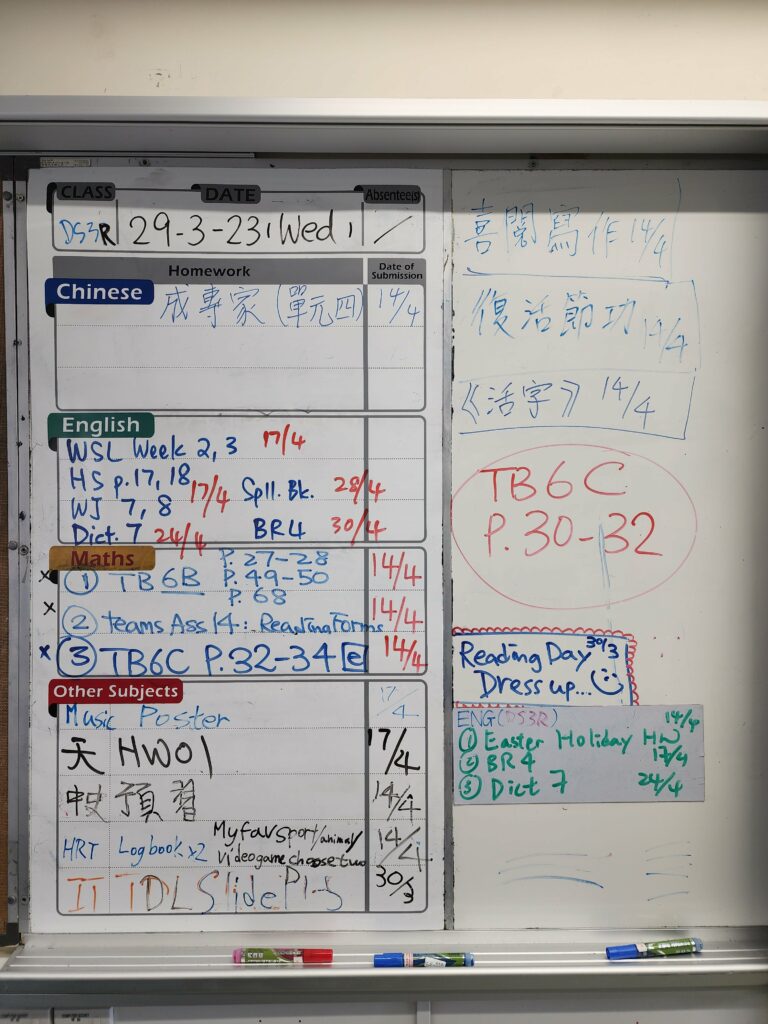 CLASS DATE Absentee(s)
DS3R 29-3-23, Wed, /
Homework Date of Submission
Chinese 成專家(單元四) 14/4
English
WSL Week 2, 3 17/4
HS p.17, 18
WJ 7, 8 17/4 Spll. Bk. 28/4
Dict. 7 24/4 BR4 30/4
Maths P. 27-28
① TB 6B P. 49-50 14/4
P. 68
② teams Ass 14: Reading Forms 14/4
③ TB6C P.32-34 e 14/4
Other Subjects
Music Poster 17/4
天 HW01 17/4
中史 預習 14/4
HRT Logbook x2 My fav sport/animal/ 14/4
videogame choose two
IT TDL Slide P1-5 30/3
喜閱寫作 14/4
復活節功 14/4
《活字》 14/4
TB6C
P. 30-32
Reading Day 30/3
Dress up....
ENG(DS3R) 14/4
① Easter Holiday HW
② BR4 17/4
③ Dict 7 24/4